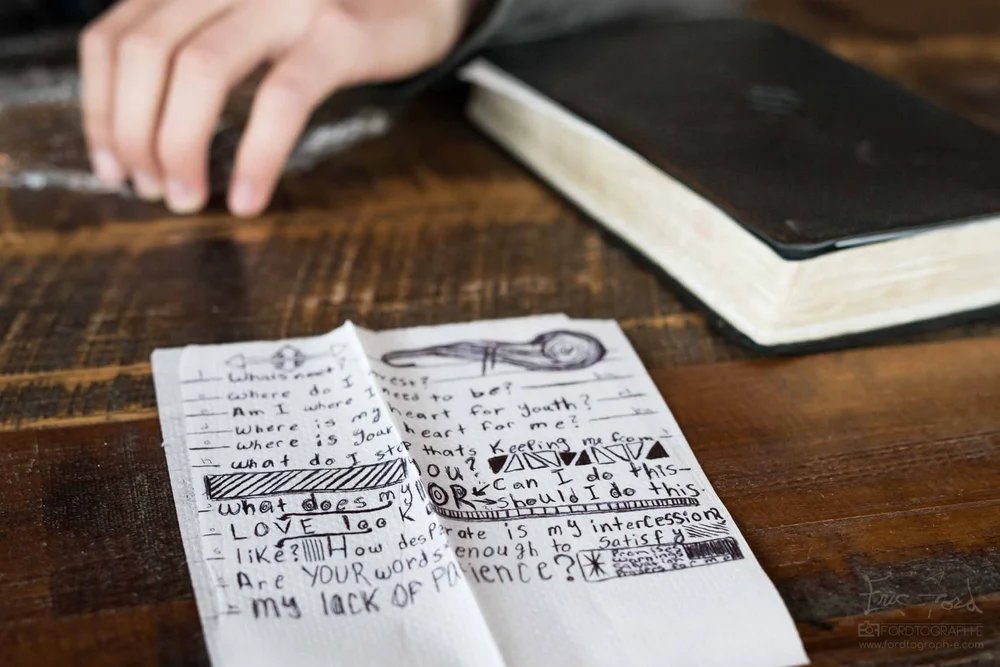 What's next?
Where do I need to be?
Am I where my heart for youth?
Where is my heart for me?
Where is your
what do I stop thats Keeping me from
you?
Can I do this-
OR should I do this
what does my
LOVE loo K
like? How desperate is my intercession
Are YOUR words enough to satisfy
my lack OF PAtience?
Promises
Eric Ford
FORDTOGRAPH-E
www.fordtograph-e.com